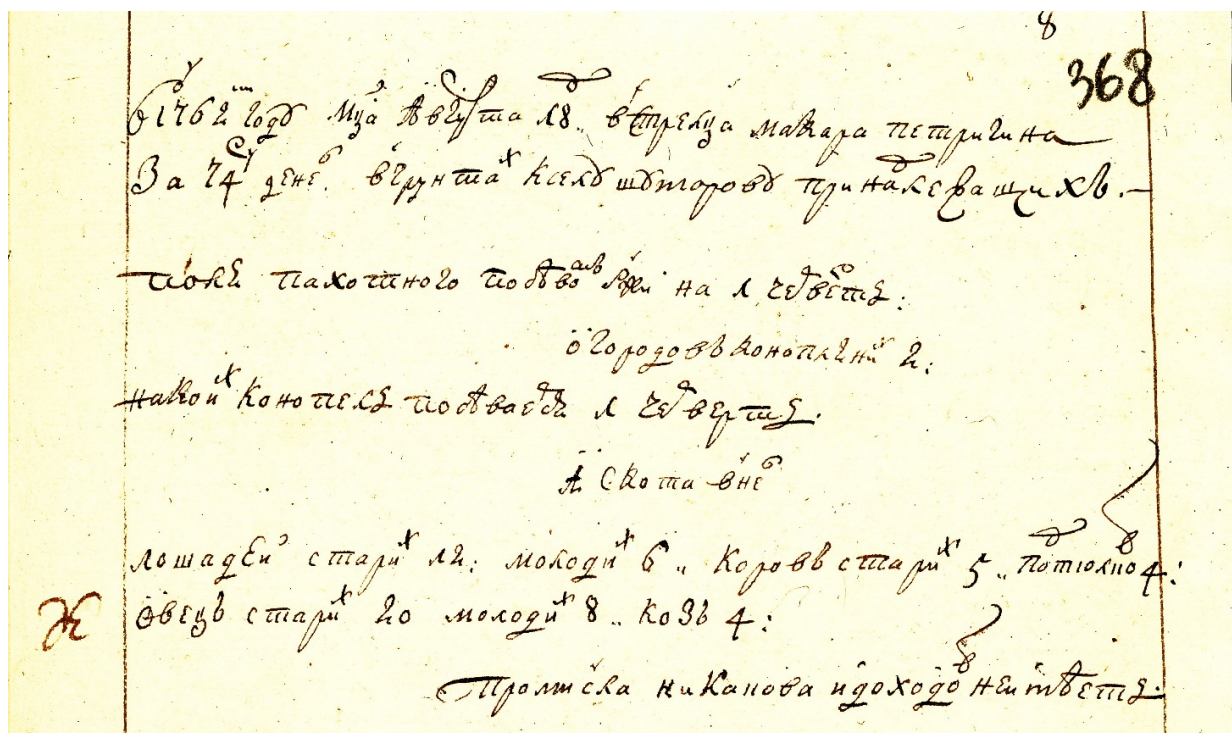 8
368
1762 году мца августа 18 в стрелца макара петричина
За 74 дене в кгрунта х к селу шуторову приналежащихъ.
поля пахотного посѣво ржи на 1 четвертъ:
огородовъ конопляни х 2:
на кои х конопель посѣвает 1 четверть.
А скота в не
лошадей стари х 12: молоди х 6 коровъ стари х 5 потюлко 4:
овецъ стари х 20 молоди х 8 козъ 4:
Промисла никакова и доходо в не имѣетъ.